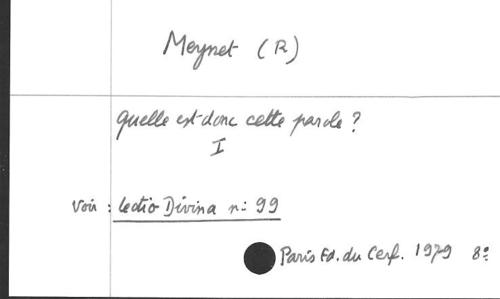 Meynet (R)
quelle est donc cette parole ?
I
Voir : Lectio Divina n: 99
Paris Ed. du Cerf. 1979 8º